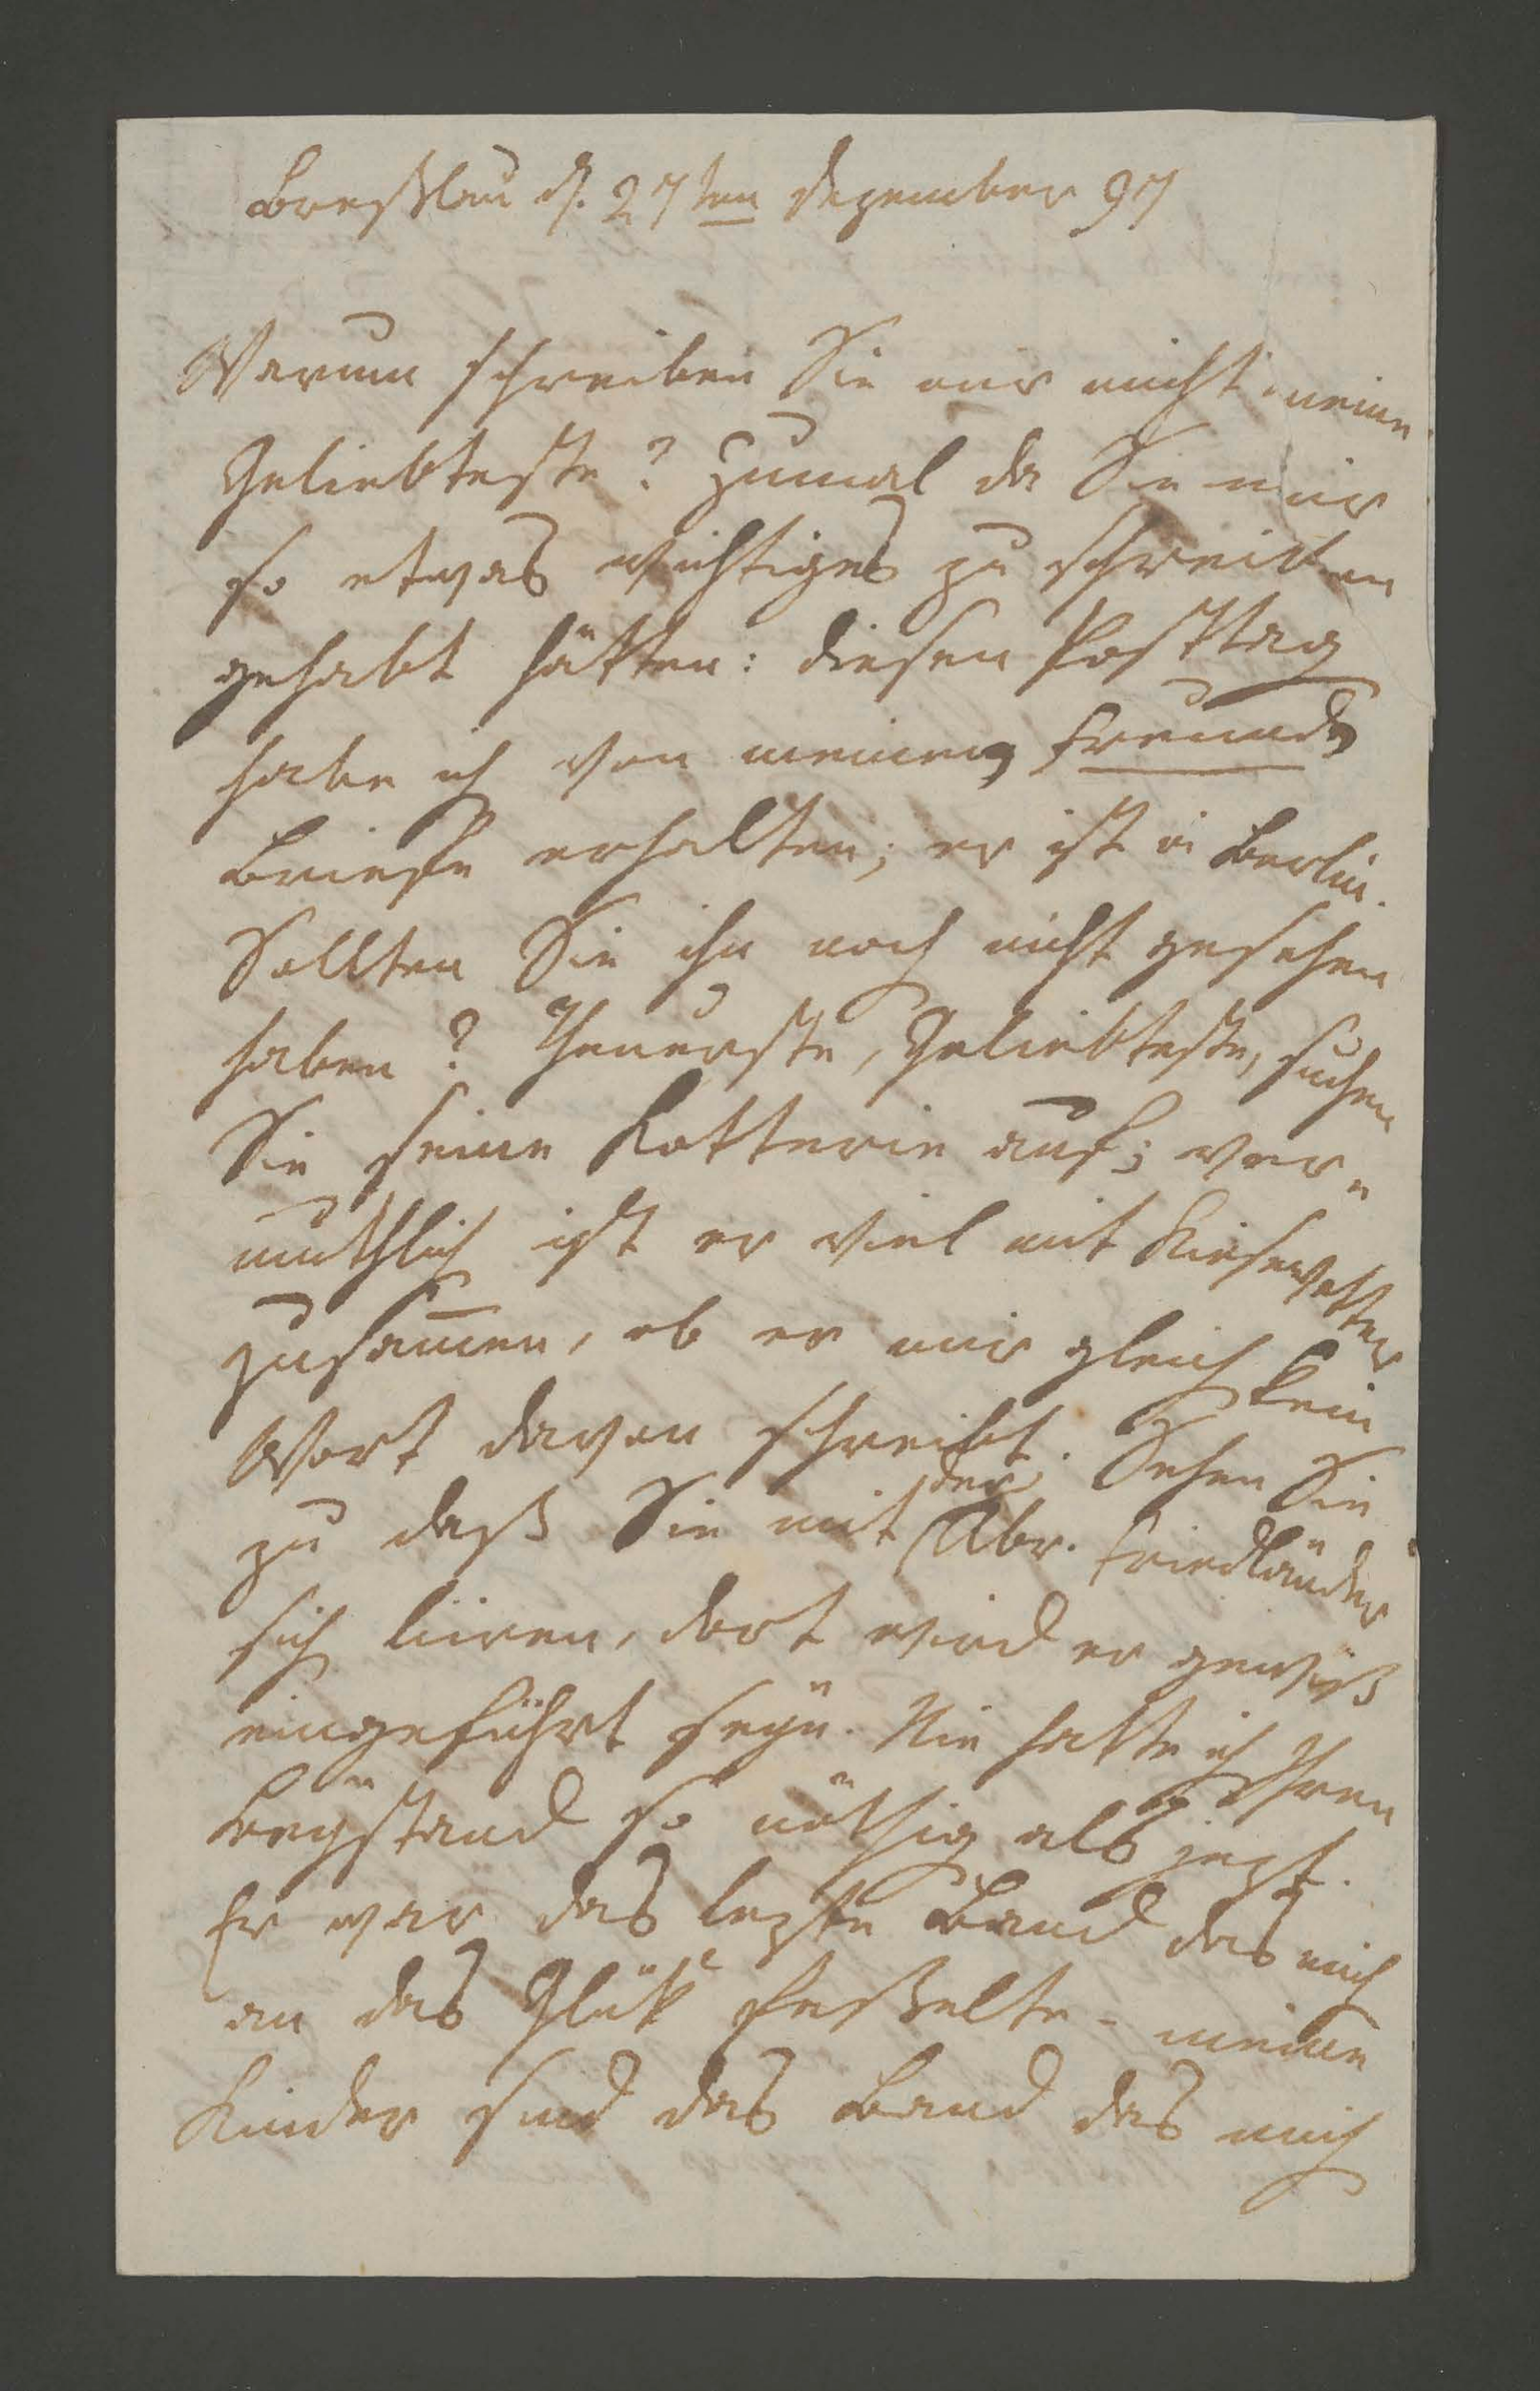 Breßlau d. 27ten Dezember 97
Warum schreiben Sie mir nicht meine
Geliebteste? Zumal da Sie mir
so etwas wichtiges zu schreiben
gehabt hätten: diesen Posttag
habe ich von meinem Freunde
Briefe erhalten; er ist in Berlin.
Sollten Sie ihn noch nicht gesehen
haben? Theuerste, Geliebteste, suchen
Sie seine Kotterie auf; ver-
muthlich ist er viel mit Kiesewetter
zusam̄en, ob er mir gleich kein
Wort davon schreibt. Sehen Sie
zu daß Sie mit der Abr. Friedländer
sich liiren, dort wird er gewiß
eingeführt seÿn. Nie hatte ich Ihren
Beÿstand so nöthig als jezt.
Er war das lezte Band das mich
an das Glük feßelte - meine
Kinder sind das Band das mich